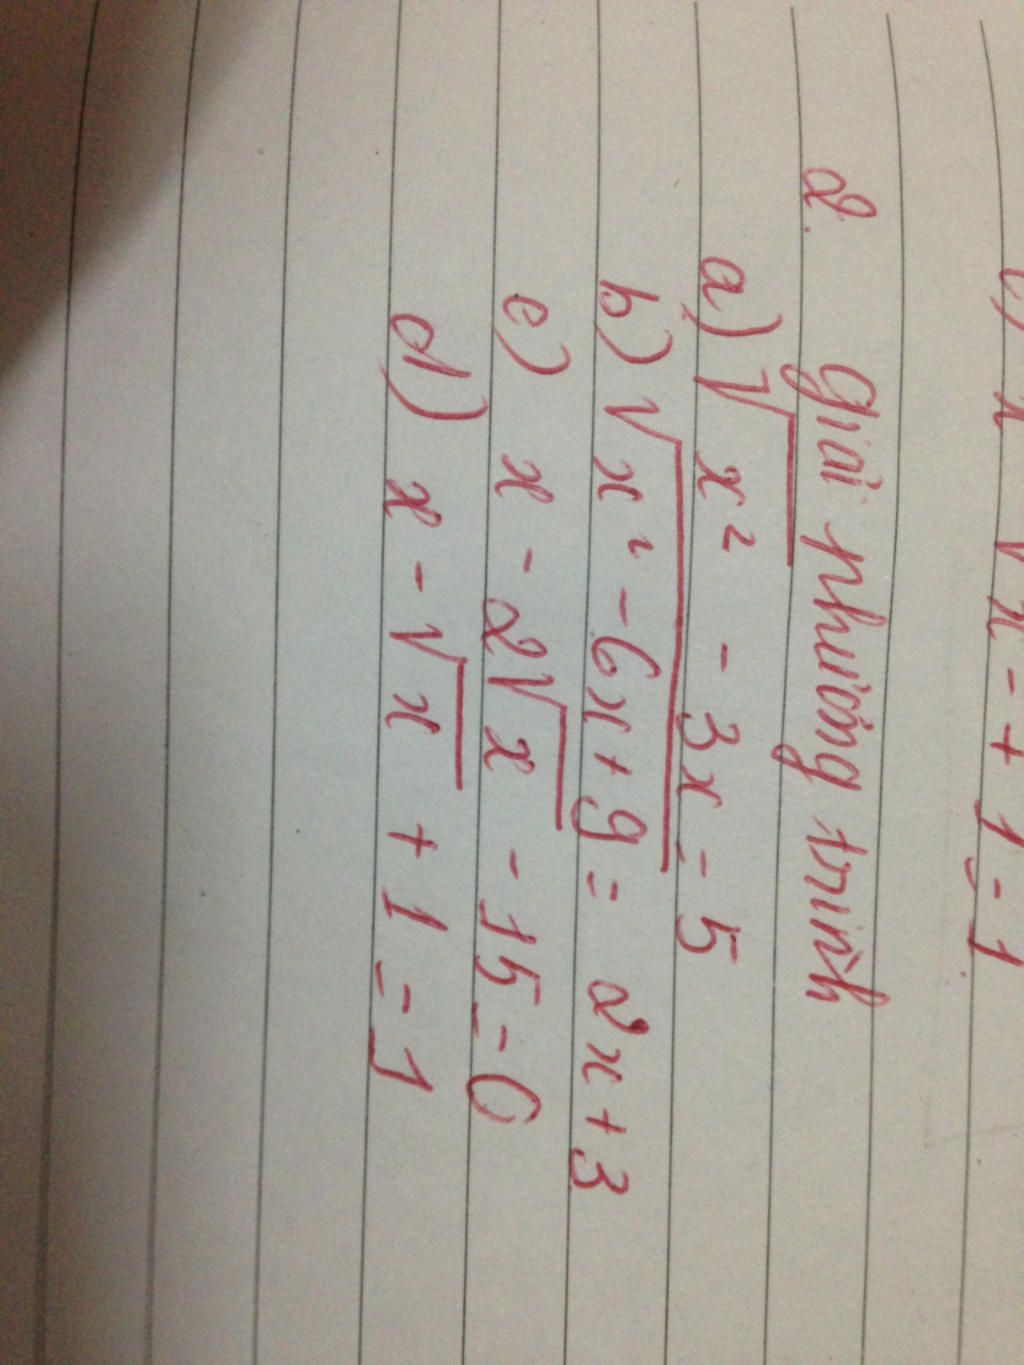 c) x √x - + 1 = 1
2. Giải phương trình
a) √x² - 3x = 5
b) √x² - 6x + 9 = 2x + 3
c) x - 2√x - 15 = 0
d) x - √x + 1 = 1